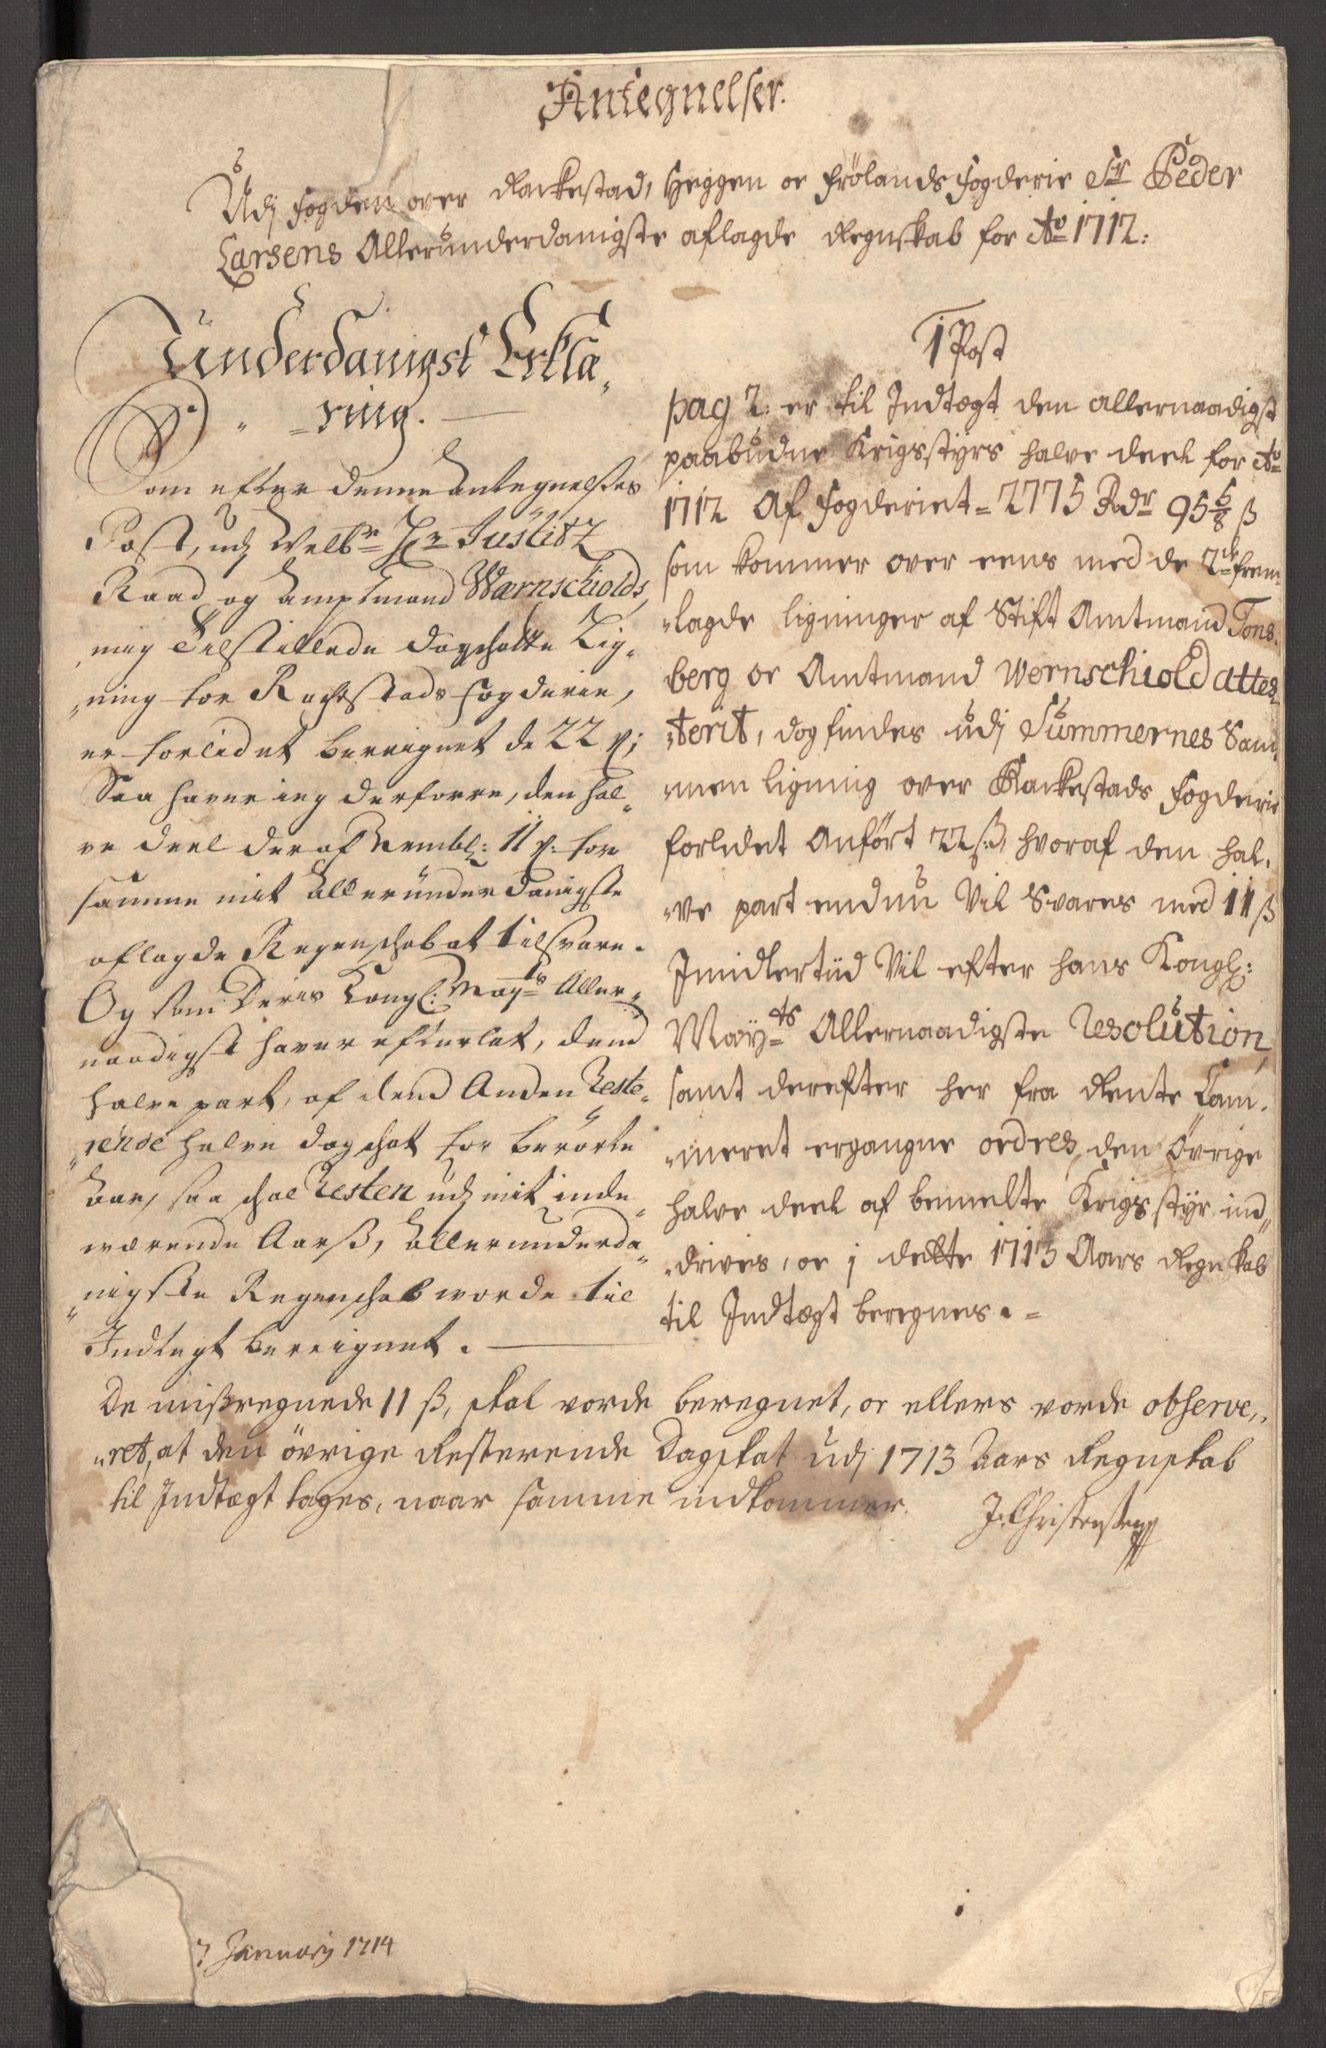 Antegnelser.
Udj fogden over Rackestad, Heggen oc Frölands fogderie Sr Peder
Larsens Allerunderdanigste aflagde Regnskab for Ao 1712:
Underdanigst Erklæ„
„ = ring.
Som efter denne Antegnelses
Post, udj Welbr Hr Justitz
Raad og Amptmand Warnschiolds,
mig Tilstillede dagschatte Lig„
„ning for Rachestads fogderie,
er forlidet bereignet de 22 ß;
Saa haver ieg derforre, den hal„
ve deel deraf Nembl: 11 ß. for
samme mit Alleründerdanigste
aflagde Regenschab at tilsvare.
Og som Deris Kongl: Mayts Aller„
naadigst haver efterlat, dend
halve part, af dend Anden Reste„
„rende halve dagschat for berörte
Aar, saa schal Resten udj mit inde„
værende Aarß, Allerunderda„
„nigste Regenschab worde til
Indtegt bereignet.
1 Post
pag 2: er til Indtægt den allernaadigst
paabudne Krigsstyrs halve deel for Ao
1712 Af fogderiet = 2775 Rdr 95 5/8 ß
som kommer over eens med de 2de frem„
„lagde ligninger af Stift Amtmand Tons„
berg oc Amtmand Wernschiold attes„
„terit, dog findes udj Summernes Sam„
„men ligning over Rackestads fogderie
forlidet Anfört 22 ß, hvoraf den hal„
„ve part endnu Vil Svares med 11 ß
Imidlertiid Vil efter hans Kongl:
Mayts Allernaadigste Resolution,
samt derefter her fra Rente Cam„
„meret ergangne ordres, den Övrige
halve deel af bemelte Krigsstyr ind„
„drives, oc j dette 1713 Aars Regnskab
til Indtægt beregnes. =
De mißregnede 11 ß, skal vorde beregnet, oc ellers vorde observe„
„ret, at den övrige Resterende Dagskat udj 1713 Aars Regnskab
til Indtægt tages, naar samme indkommer.
J: Christensen
7 January 1714